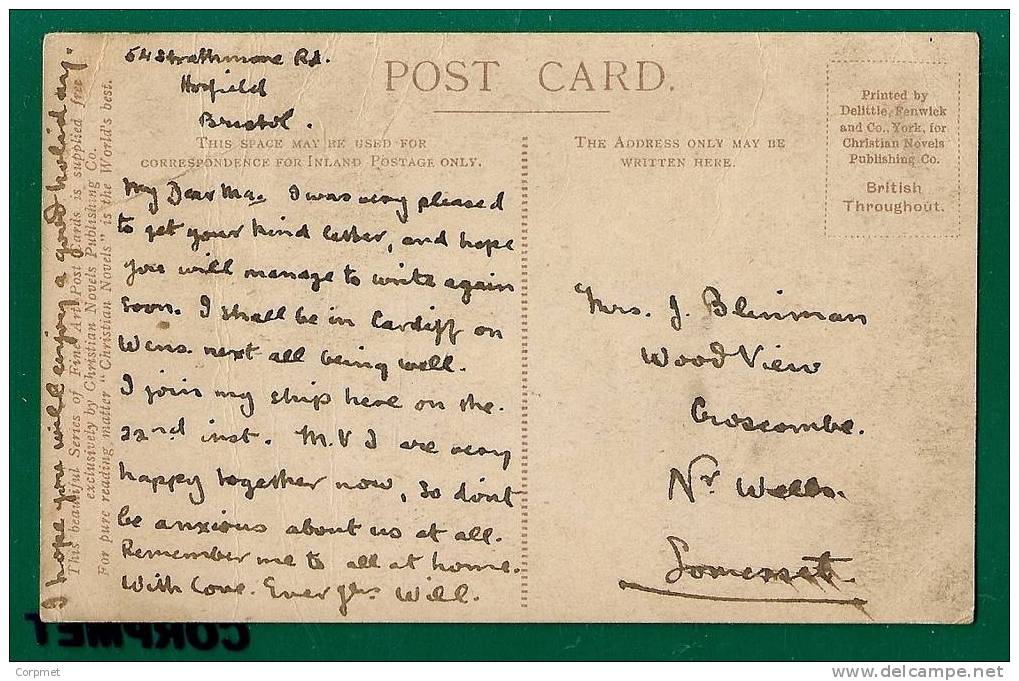 54 Strathmore Rd.
Horfield
Bristol.
POST CARD.
THIS SPACE MAY BE USED FOR
CORRESPONDENCE FOR INLAND POSTAGE ONLY.
THE ADDRESS ONLY MAY BE
WRITTEN HERE.
Printed by
Delittle, Fenwick
and Co., York, for
Christian Novels
Publishing Co.
British
Throughout.
My Dear Ma. I was very pleased
to get your kind letter, and hope
you will manage to write again
soon. I shall be in Cardiff on
Wens. next all being well.
I join my ship here on the.
22nd inst. M. & I are very
happy together now, so don't
be anxious about us at all.
Remember me to all at home.
With Love. Ever yrs Will.
I hope you will enjoy a good holiday.
This beautiful Series of Fine Art Post Cards is supplied free
exclusively by Christian Novels Publishing Co.
For pure reading matter "Christian Novels" is the World's best.
Mrs. J. Blinman
Wood View
Croscombe.
Nr Wells.
Somerset.
CORPMET
Corpmet
www.delcampe.net